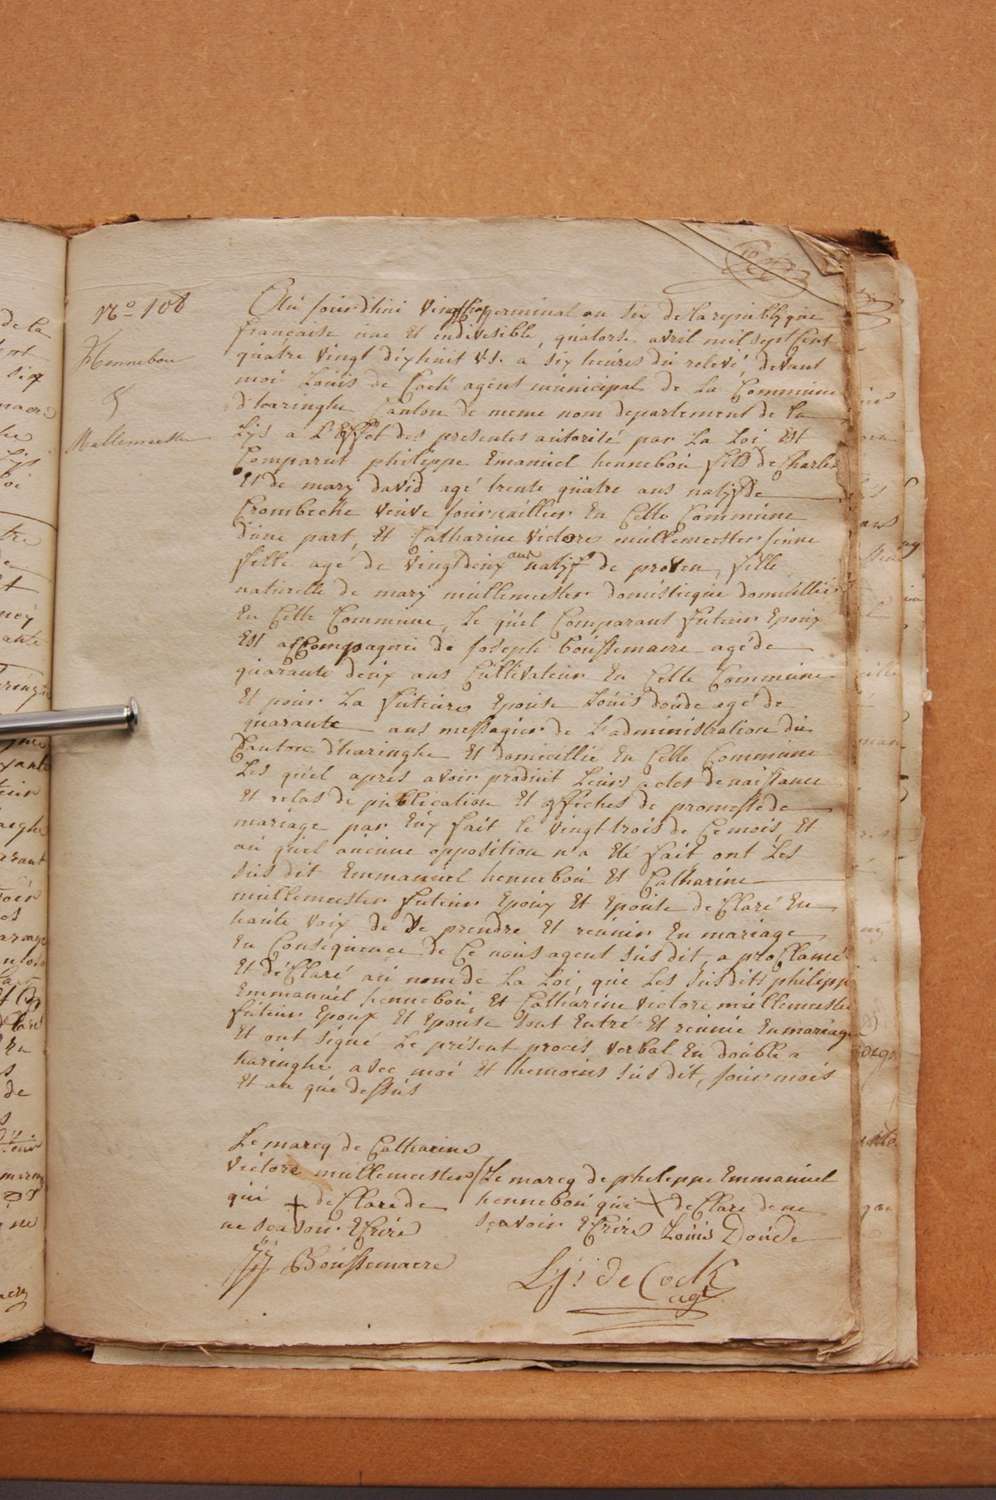 No 108
Hennebou
&
Mullemeester
Au jourdhui vingtcinq germinal an six de la republique
française une et indivisible, quatorse avril mil sept cent
quatre vingt dixhuit v.s. a six heures du relevé, devant
moi Loüis de Cock agent municipal de la Commune
d'haringhe Canton de meme nom departement de la
Lÿs a L'Effet des presentes autorité par La Loi, Est
Comparut philippe Emanüel hennebou fils de Charles
Et de mary david agé trente quatre ans natif de
Crombeche veuve journaillier En Cette Commune
d'une part, Et Catharine victore mullemeester jeune
fille agé de vingtdeux ans natif de proven, fille
naturelle de mary müllemeester domestique domicillié
En Cette Commune, Le quel Comparant futeur Epoux
Est accompagnié de joseph boussemaere agé de
quarante deux ans Cultivateur En Cette Commune
Et pour La futeure Epouse Loüis doude agé de
quarante ans messagier de L'administration du
Canton d'haringhe Et domicillié En Cette Commune
Les quel apres avoir produit Leurs actes de naissance
Et relas de publication Et affiches de promesse de
mariage par Eux fait le vingt trois de Ce mois, Et
au quel aucune opposition n'a Eté fait ont Les
susdit Emmanuel hennebou Et Catharine
mullemeester futeur Epoux Et Epouse de Claré En
haute voix de se prendre Et reünir En mariage
En Consequence de Ce nous agent susdit, a proClamé
Et déClaré au nom de La Loi, que Les susdits philippe
Emmanuel hennebou, Et Catharine victore mullemeester
futeur Epoux Et Epouse sont Entré Et reünie En mariage
Et ont signé Le présent procés verbal En double a
haringhe avec moi Et themoins susdit, jour mois
Et an que dessus
Le marcq de Catharine
victore mullemeester
qui + deClare de
ne scavoir Ecrire
Le marcq de phelippe Emmanuel
hennebou qui X deClare de ne
scavoir Ecrire Loüis Doude
JJ Boussemaere
Ljs de Cock
agt